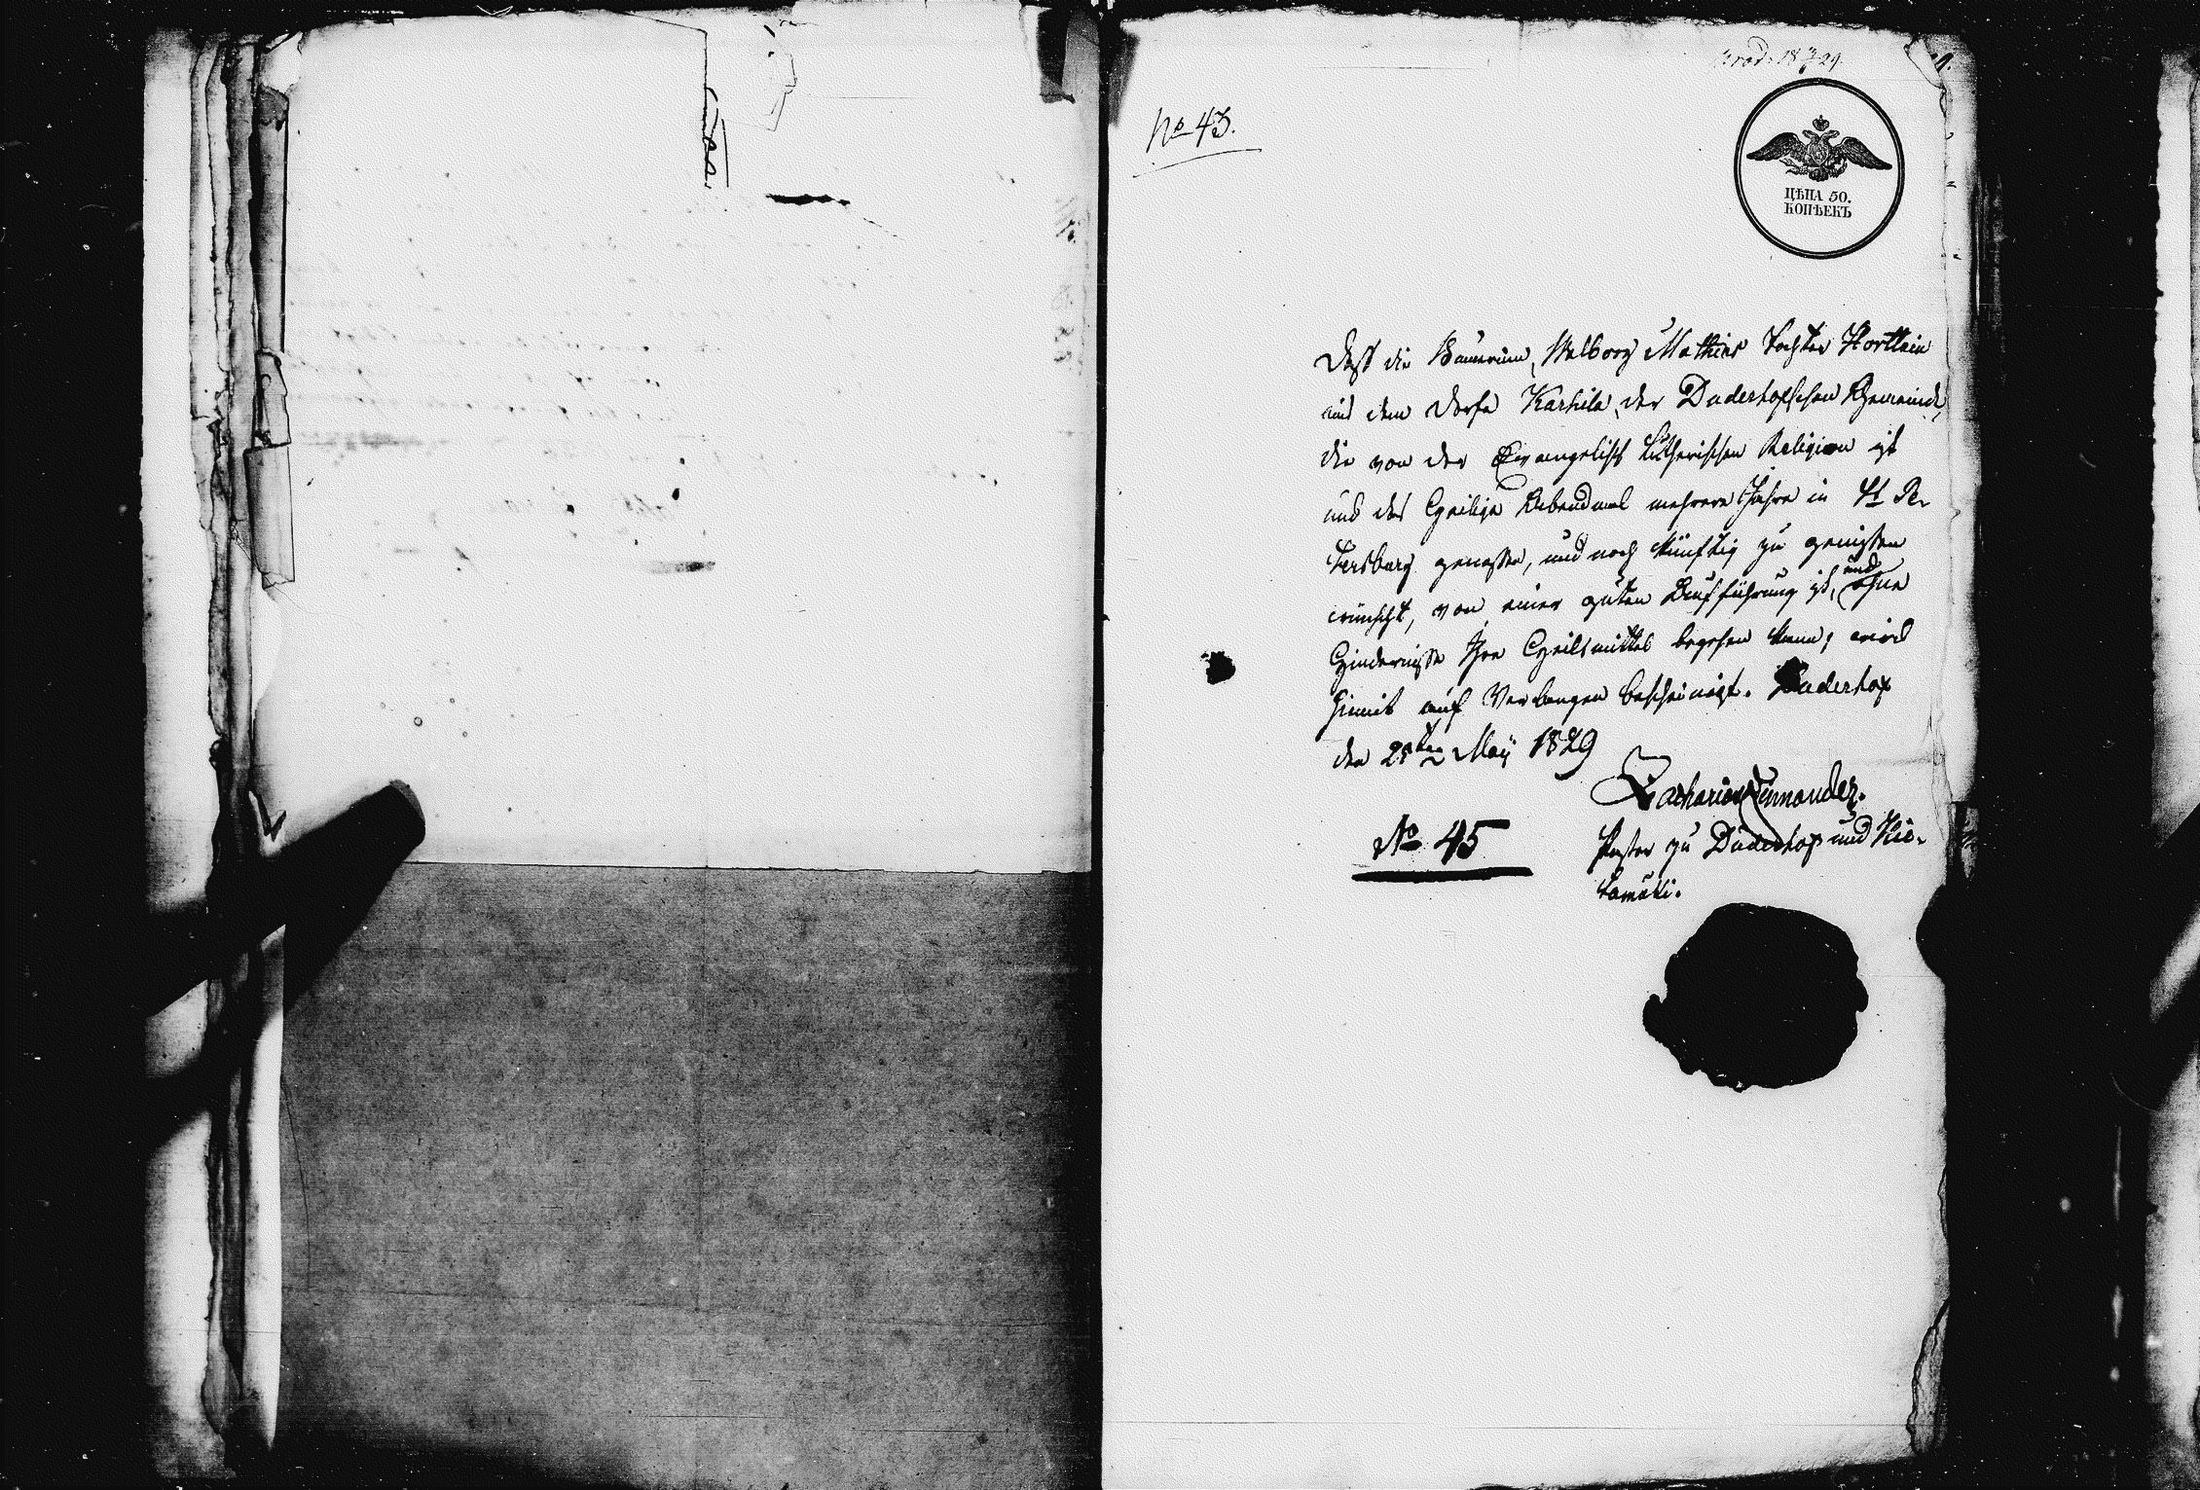 No 43.
prod. 18 7/5 29.
ЦѢНА 50.
КОПѢЕКЪ
Daß die Bäuerinn, Walborg Mathias Tochter Korttein
aus dem Dorfe Karhila, der Duderhofschen Gemeinde,
die von der Evangelisch Lutherischen Religion ist
und das Heilige Abendmal mehrere Jahre in St Pe-
tersburg genossen, und noch künftig zu genießen
wünscht, von einer guten Aufführung ist, und ohne
Hindernisse Ihre Heilsmittel begehen kann; wird
hiemit auf Verlangen bescheiniget. Duderhof
den 28ten Maij 1829
Zacharias Cannander.
No 45
Pastor zu Duderhof und Hie-
tamäki.